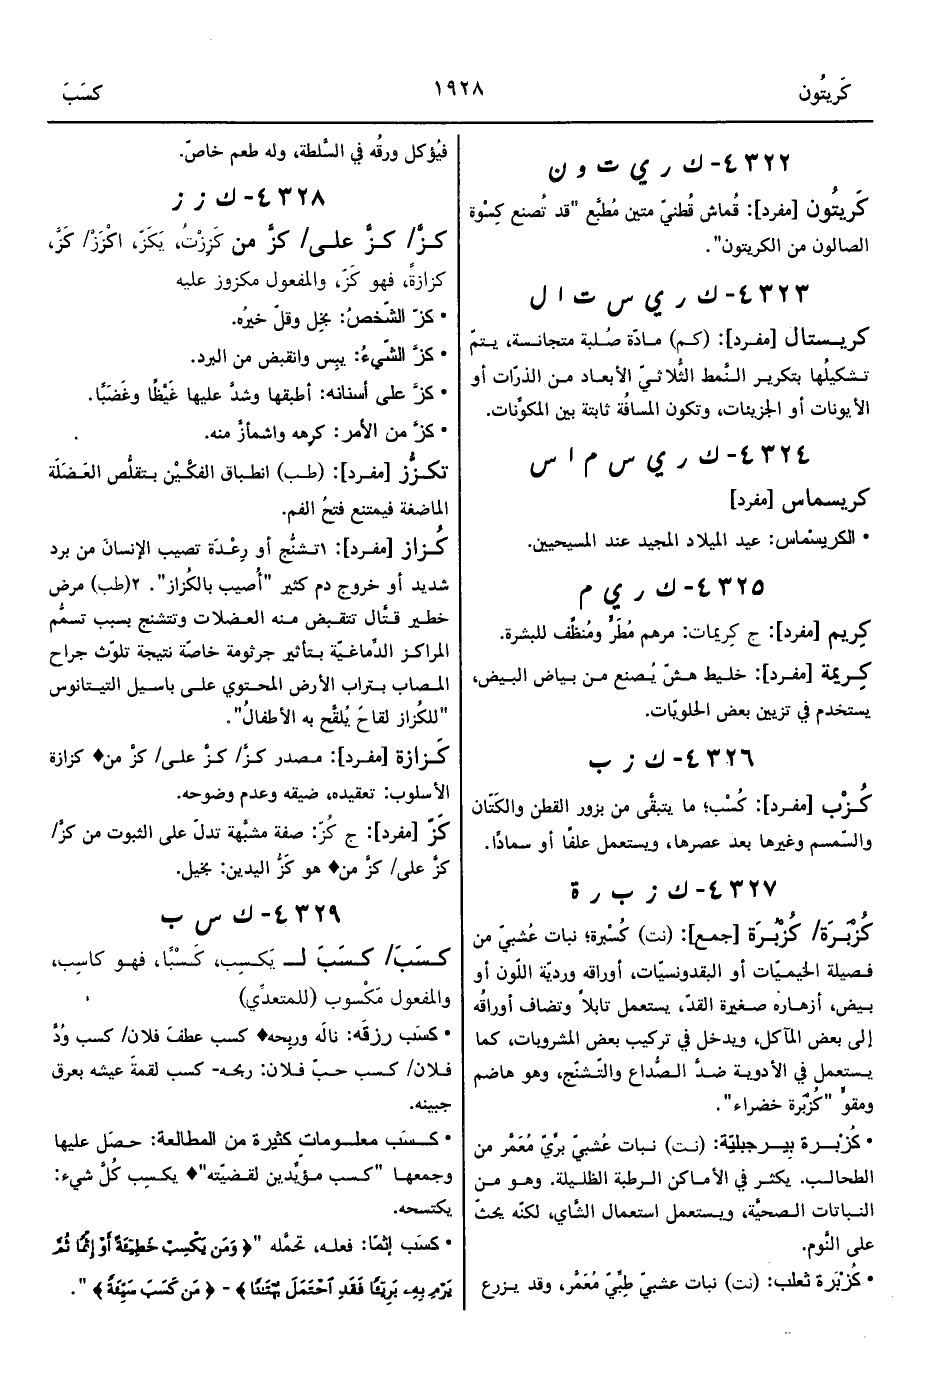 كَريتُون
١٩٢٨
كسَبَ
٤٣٢٢- ك ر ي ت و ن
كَريتُون [مفرد]: قُماش قُطنيّ متين مُطبَّع "قد تُصنع كِسْوة
الصالون من الكريتون".
٤٣٢٣- ك ر ي س ت ا ل
كريستال [مفرد]: (كم) مادّة صُلبة متجانسة، يتمّ
تشكيلُها بتكرير النَّمط الثُّلاثيّ الأبعاد من الذرات أو
الأيونات أو الجزيئات، وتكون المسافةُ ثابتة بين المكوِّنات.
٤٣٢٤- ك ر ي س م ا س
كريسماس [مفرد]
• الكريسْماس: عيد الميلاد المجيد عند المسيحيين.
٤٣٢٥- ك ر ي م
كِريم [مفرد]: ج كِريمات: مرهم مُطَرٍّ ومُنظِّف للبشرة.
كِريمة [مفرد]: خليط هشّ يُصنع من بياض البيض،
يستخدم في تزيين بعض الحلويّات.
٤٣٢٦- ك ز ب
كُزْب [مفرد]: كُسْب؛ ما يتبقَّى من بزور القطن والكَتّان
والسِّمسم وغيرها بعد عصرها، ويستعمل علفًا أو سمادًا.
٤٣٢٧- ك ز ب ر ة
كُزْبَرَة/ كُزْبُرَة [جمع]: (نت) كُسْبرة؛ نبات عُشبيّ من
فصيلة الخيميّات أو البقدونسيّات، أوراقه ورديّة اللَّون أو
بيض، أزهاره صغيرة القدّ، يستعمل تابلاً وتضاف أوراقُه
إلى بعض المآكل، ويدخل في تركيب بعض المشروبات، كما
يستعمل في الأدوية ضدَّ الصُّداع والتَّشنّج، وهو هاضم
ومقوٍّ "كُزْبَرة خضراء".
• كُزْبَرة بيرجبليّة: (نت) نبات عُشبيّ برّيّ مُعَمَّر من
الطحالب. يكثر في الأماكن الرطبة الظليلة. وهو من
النباتات الصحيَّة، ويستعمل استعمال الشَّاي، لكنَّه يحثّ
على النَّوم.
• كُزْبَرة ثعلب: (نت) نبات عشبيّ طِبِّيّ مُعَمَّر، وقد يزرع
فيُؤكل ورقُه في السَّلطة، وله طعم خاصّ.
٤٣٢٨- ك ز ز
كزَّ/ كزَّ على/ كزَّ من كَزِزْتُ، يَكَزّ، اكْزَزْ/ كَزَّ،
كزازةً، فهو كَزّ، والمفعول مكزوز عليه
• كزّ الشَّخصُ: بخِل وقلّ خيرُه.
• كزَّ الشَّيءُ: يبِس وانقبض من البرد.
• كزَّ على أسنانه: أطبقها وشدَّ عليها غَيْظًا وغَضَبًا.
• كزَّ من الأمر: كرِهه واشمأزَّ منه.
تكزُّز [مفرد]: (طب) انطباق الفكَّيْن بتقلّص العَضَلَة
الماضغة فيمتنع فتحُ الفم.
كُزاز [مفرد]: ١تشنُّج أو رِعْدَة تصيب الإنسانَ من برد
شديد أو خروج دم كثير "أُصيب بالكُزاز". ٢(طب) مرض
خطير قتَّال تنقبض منه العضلات وتتشنج بسبب تسمُّم
المراكز الدِّماغيَّة بتأثير جرثومة خاصّة نتيجة تلوّث جراح
المصاب بتراب الأرض المحتوي على باسيل التيتانوس
"للكُزاز لقاحٌ يُلقَّح به الأطفالُ".
كَزازة [مفرد]: مصدر كزَّ/ كزَّ على/ كزَّ من♦ كزازة
الأسلوب: تعقيده، ضيقه وعدم وضوحه.
كَزّ [مفرد]: ج كُزّ: صفة مشبَّهة تدلّ على الثبوت من كزَّ/
كزَّ على/ كزَّ من♦ هو كَزُّ اليدين: بخيل.
٤٣٢٩- ك س ب
كسَبَ/ كسَبَ لـ يَكسِب، كَسْبًا، فهو كاسِب،
والمفعول مَكْسوب (للمتعدِّي)
• كسَب رزقَه: نالَه وربِحه♦ كسب عطفَ فلان/ كسب وُدَّ
فلان/ كسب حبّ فلان: ربحه- كسب لقمةَ عيشه بعرق
جبينه.
• كسَب معلومات كثيرة من المطالعة: حصَل عليها
وجمعها "كسب مؤيِّدين لقضيّته"♦ يكسِب كُلَّ شيء:
يكتسحه.
• كسَب إثمًا: فعله، تحمَّله "﴿ وَمَن يَكْسِبْ خَطِيئَةً أَوْ إِثْمًا ثُمَّ
يَرْمِ بِهِۦ بَرِيٓئًا فَقَدِ ٱحْتَمَلَ بُهْتَٰنًا ﴾ - ﴿ مَن كَسَبَ سَيِّئَةً ﴾ ".